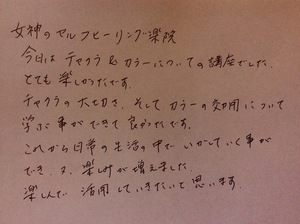 女神のセルフヒーリング楽院
今日はチャクラ&カラーについての講座でした.
とても楽しかったです.
チャクラの大切さ、そしてカラーの効用について
学ぶ事ができて良かったです.
これから日常の生活の中でいかしていく事が
でき、又、楽しみが増えました.
楽しんで活用していきたいと思います.